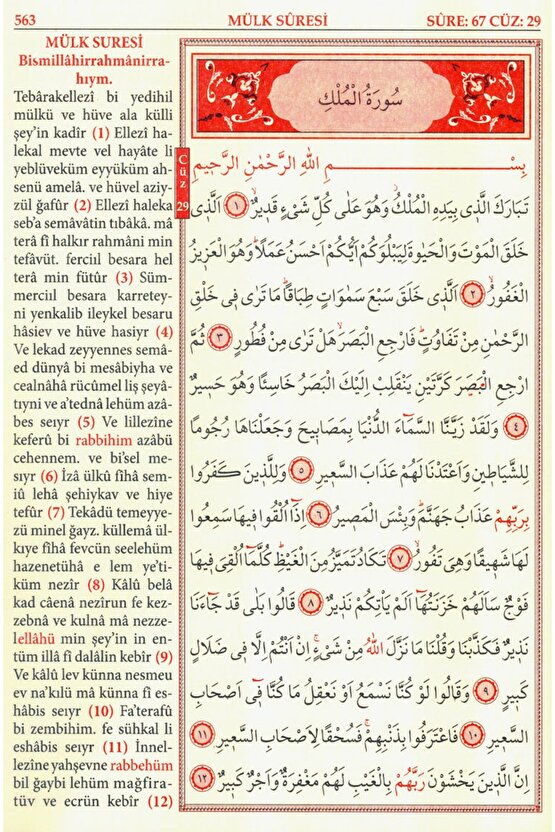 563 MÜLK SÛRESİ SÛRE: 67 CÜZ: 29
MÜLK SURESİ
Bismillâhirrahmânirra-
hıym.
Tebârakellezî bi yedihil
mülkü ve hüve ala külli
şey'in kadîr (1) Ellezî ha-
lekal mevte vel hayâte li
yeblüveküm eyyüküm ah-
senü amelâ. ve hüvel aziy-
zül ğafûr (2) Ellezî haleka
seb'a semâvâtin tıbâkâ. mâ
terâ fî halkır rahmâni min
tefâvüt. ferciıl besara hel
terâ min fütûr (3) Süm-
merciıl besara karretey-
ni yenkalib ileykel besaru
hâsiev ve hüve hasiyr (4)
Ve lekad zeyyennes semâ-
ed dünyâ bi mesâbiyha ve
cealnâhâ rücûmel liş şeyâ-
tıyni ve a'tednâ lehüm azâ-
bes seıyr (5) Ve lillezîne
keferû bi rabbihim azâbü
cehennem. ve bi'sel me-
sıyr (6) İzâ ülkû fîhâ sem-
iû lehâ şehiykav ve hiye
tefûr (7) Tekâdü temeyye-
zü minel ğayz. küllemâ ül-
kıye fîhâ fevcün seelehüm
hazenetühâ e lem ye'ti-
küm nezîr (8) Kâlû belâ
kad câenâ nezîrun fe kez-
zebnâ ve kulnâ mâ nezze-
lellâhü min şey'in in en-
tüm illâ fî dalâlin kebîr (9)
Ve kâlû lev künna nesmeu
ev na'kılü mâ künna fî es-
hâbis seıyr (10) Fa'terafû
bi zembihim. fe sühkal li
eshâbis seıyr (11) İnnel-
lezîne yahşevne rabbehüm
bil ğaybi lehüm mağfira-
tüv ve ecrün kebîr (12)
Cüz 29
سُورَةُ الْمُلْكِ
بِسْمِ اللّٰهِ الرَّحْمٰنِ الرَّحٖيمِ
تَبَارَكَ الَّذٖى بِيَدِهِ الْمُلْكُ وَهُوَ عَلٰى كُلِّ شَىْءٍ قَدٖيرٌ ﴿١﴾ اَلَّذٖى
خَلَقَ الْمَوْتَ وَالْحَيٰوةَ لِيَبْلُوَكُمْ اَيُّكُمْ اَحْسَنُ عَمَلًا وَهُوَ الْعَزٖيزُ
الْغَفُورُ ﴿٢﴾ اَلَّذٖى خَلَقَ سَبْعَ سَمٰوَاتٍ طِبَاقًا مَا تَرٰى فٖى خَلْقِ
الرَّحْمٰنِ مِنْ تَفَاوُتٍ فَارْجِعِ الْبَصَرَ هَلْ تَرٰى مِنْ فُطُورٍ ﴿٣﴾ ثُمَّ
ارْجِعِ الْبَصَرَ كَرَّتَيْنِ يَنْقَلِبْ اِلَيْكَ الْبَصَرُ خَاسِئًا وَهُوَ حَسٖيرٌ
﴿٤﴾ وَلَقَدْ زَيَّنَّا السَّمَاءَ الدُّنْيَا بِمَصَابٖيحَ وَجَعَلْنَاهَا رُجُومًا
لِلشَّيَاطٖينِ وَاَعْتَدْنَا لَهُمْ عَذَابَ السَّعٖيرِ ﴿٥﴾ وَلِلَّذٖينَ كَفَرُوا
بِرَبِّهِمْ عَذَابُ جَهَنَّمَ وَبِئْسَ الْمَصٖيرُ ﴿٦﴾ اِذَا اُلْقُوا فٖيهَا سَمِعُوا
لَهَا شَهٖيقًا وَهِىَ تَفُورُ ﴿٧﴾ تَكَادُ تَمَيَّزُ مِنَ الْغَيْظِ كُلَّمَا اُلْقِىَ فٖيهَا
فَوْجٌ سَاَلَهُمْ خَزَنَتُهَا اَلَمْ يَاْتِكُمْ نَذٖيرٌ ﴿٨﴾ قَالُوا بَلٰى قَدْ جَاءَنَا
نَذٖيرٌ فَكَذَّبْنَا وَقُلْنَا مَا نَزَّلَ اللّٰهُ مِنْ شَىْءٍ اِنْ اَنْتُمْ اِلَّا فٖى ضَلَالٍ
كَبٖيرٍ ﴿٩﴾ وَقَالُوا لَوْ كُنَّا نَسْمَعُ اَوْ نَعْقِلُ مَا كُنَّا فٖى اَصْحَابِ
السَّعٖيرِ ﴿١٠﴾ فَاعْتَرَفُوا بِذَنْبِهِمْ فَسُحْقًا لِاَصْحَابِ السَّعٖيرِ ﴿١١﴾
اِنَّ الَّذٖينَ يَخْشَوْنَ رَبَّهُمْ بِالْغَيْبِ لَهُمْ مَغْفِرَةٌ وَاَجْرٌ كَبٖيرٌ ﴿١٢﴾